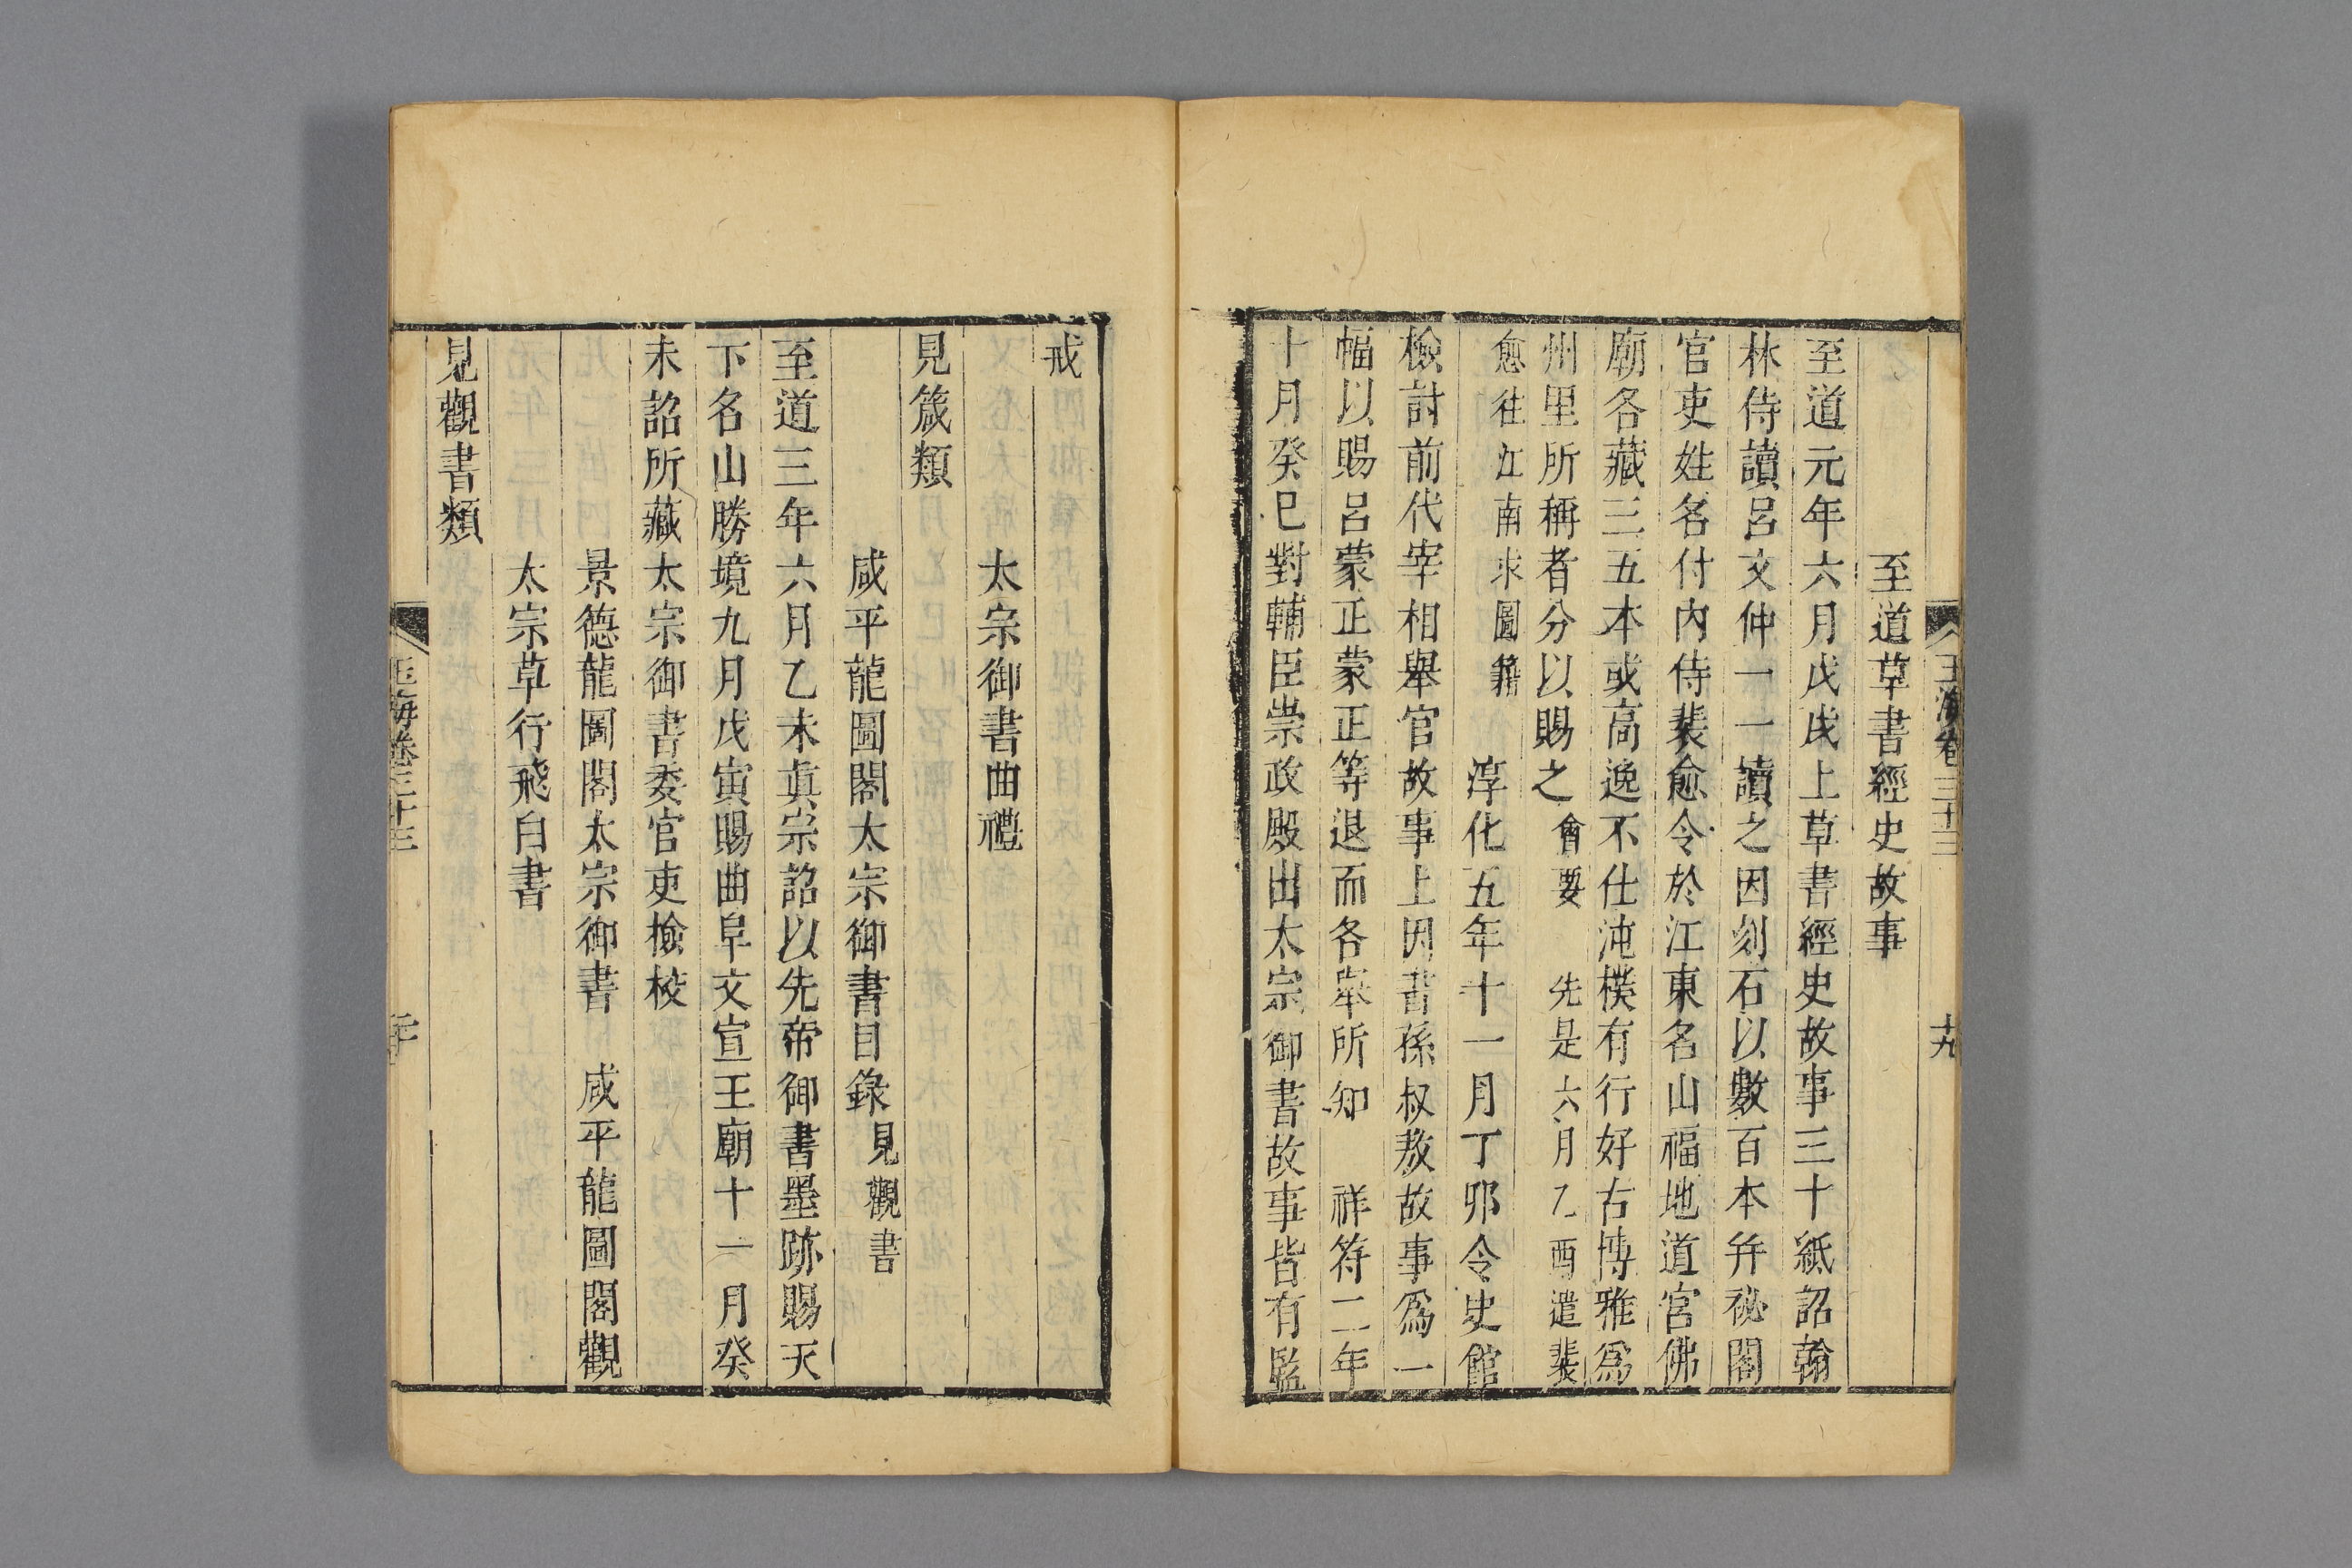 玉海卷三十三
十九
至道草書經史故事
至道元年六月戊戌上草書經史故事三十紙詔翰
林侍讀呂文仲一一讀之因刻石以數百本幷祕閣
官吏姓名付內侍裴愈令於江東名山福地道宮佛
廟各藏三五本或高逸不仕沌樸有行好古博雅爲
州里所稱者分以賜之會要 先是六月乙酉遣裴
愈往江南求圖籍 淳化五年十一月丁卯令史館
檢討前代宰相舉官故事上因書孫叔敖故事爲一
幅以賜呂蒙正蒙正等退而各舉所知 祥符二年
十月癸巳對輔臣崇政殿出太宗御書故事皆有監
戒
太宗御書曲禮
見箴類
咸平龍圖閣太宗御書目錄見觀書
至道三年六月乙未真宗詔以先帝御書墨跡賜天
下名山勝境九月戊寅賜曲阜文宣王廟十一月癸
未詔所藏太宗御書委官吏檢校
景德龍圖閣太宗御書 咸平龍圖閣觀
太宗草行飛白書
見觀書類
玉海卷三十三
二十